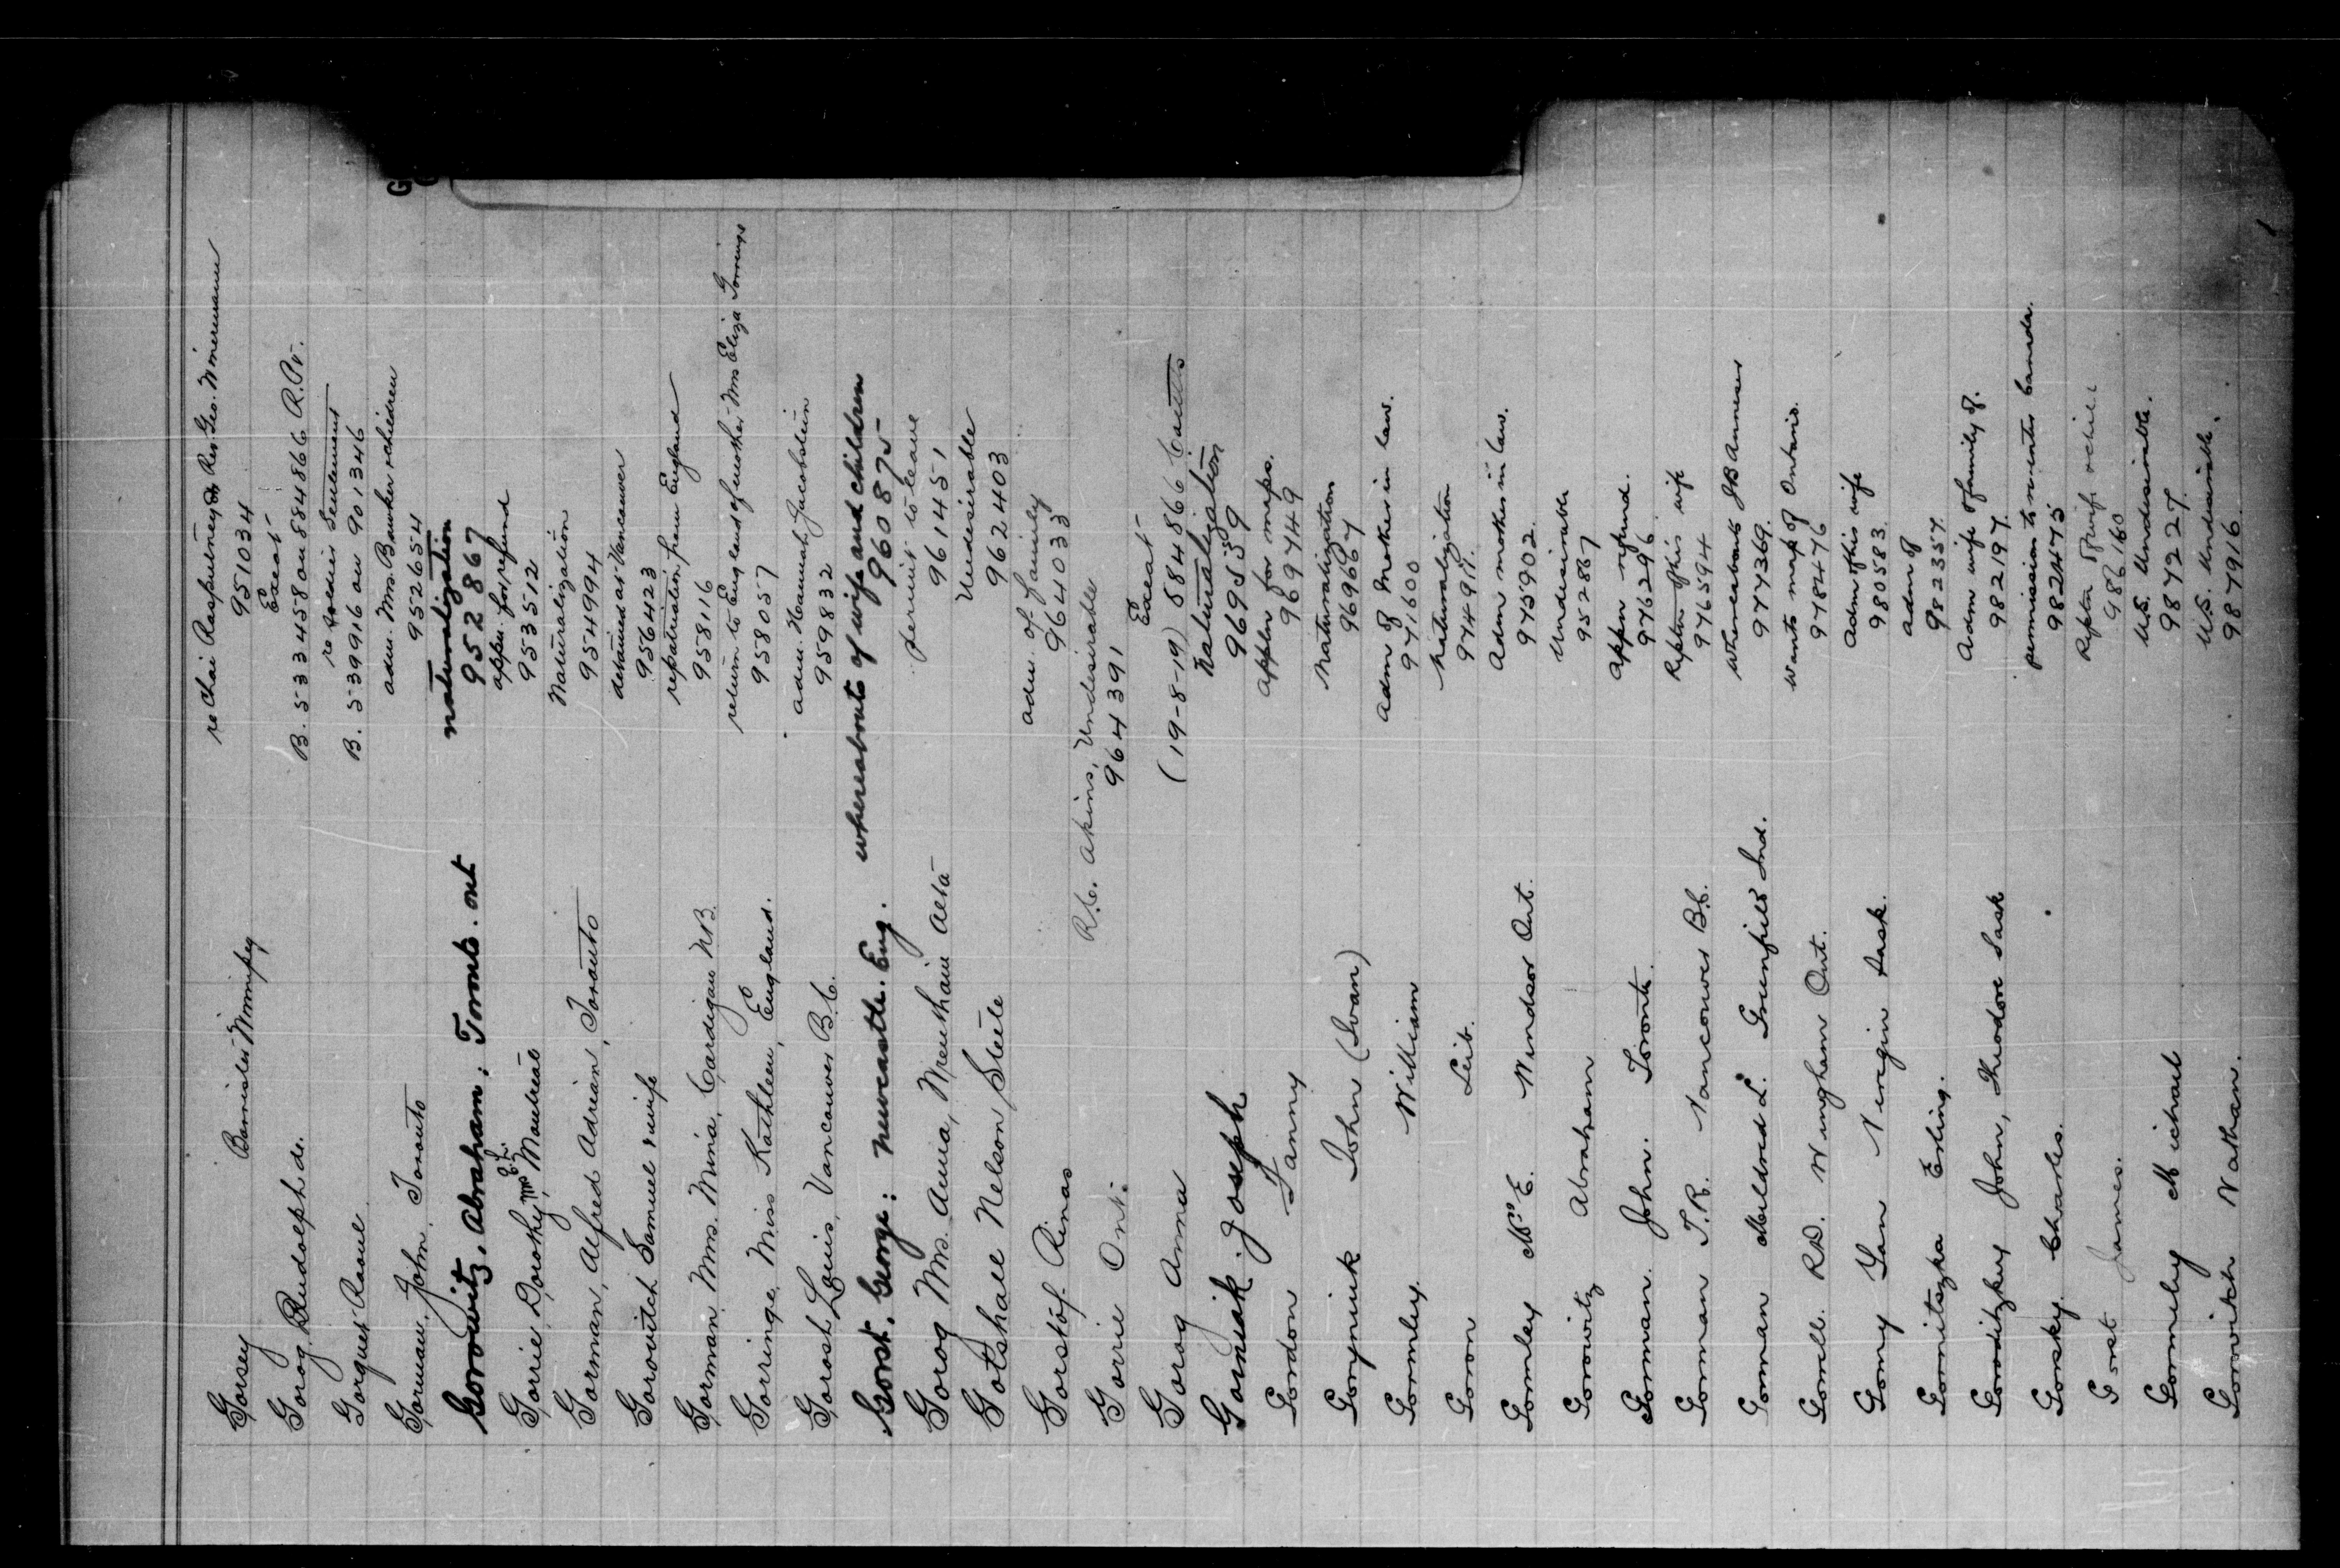 Gorsey Barrister Winnipeg re Chai Rasputney & Rev Geo. Wmermann
951034
Gorog. Rudolph de. Exeat
B. 533458 on 884866 R.Pt.
Gorguet Raoul re Soldier Settlement
B. 539916 on 901346
Gorman, John, Toronto adm. Mrs Bawker & children
952654
Gorowitz, Abraham; Toronto. Ont naturalization
952867
Gorrie, Dorothy, Mrs E.L. Montreal appn. for refund
953512
Gorman, Alfred Adrian, Toronto Naturalization
954994
Gorovitch Samuel & wife detained at Vancouver
956423
Gorman Mrs. Mina, Cardigan N.B. repatriation from England
958116
Gorringe, Miss Kathleen, England. return to England of mother Mrs Eliza Gorringe
958057
Gorosh, Louis, Vancouver B.C. adm. Hannah Jacobstein
959832
Gorst. George: Newcastle. Eng. whereabouts of wife and children
960875
Gorog Mrs. Anna, Meuthain Alta permit to leave
961451
Gotshall Nelson Steele Undesirable
962403
Gorstof Rinas adm. of family
964033
Gorrie Ont. R.C. Akins, Undesirable
964391
Gorog Anna Exeat
(19-8-19) 884866 Caults
Gorniak. Joseph Naturalization
969539
Gordon Fanny appln for maps.
969749
Goryniuk John (Ivan) Naturalization
969667
Gormley. William Adm of Mother in law.
971600
Goron Leib. Naturalization
974911.
Gormley Mrs E. Windsor Ont. Adm mother in law.
975902
Gorowitz Abraham Undesirable
952867
Gorman. John. Toronto. Appn refund.
976296
Gorman T.R. Vancouver B.C. Reptn of his wife
976594
Gorman Meldred L. Greenfield Ind. Whereabouts J B Anneser
977369.
Gorrell. R.D. Wingham Ont. Wants map of Ontario.
978476
Gorny Yan Veregin Sask. Adm of his wife
980583
Gornitszka Erling. Adm of
982357.
Goroditzkey John, Theodore Sask Adm wife & family of.
982197.
Gorsky. Charles. permission to re-enter Canada.
982475
Gorst James. Reptn of wife & chil.
986160
Gormley Michael U.S. Undesirable.
987227.
Gorovitch Nathan. U.S. Undesirable.
987916.